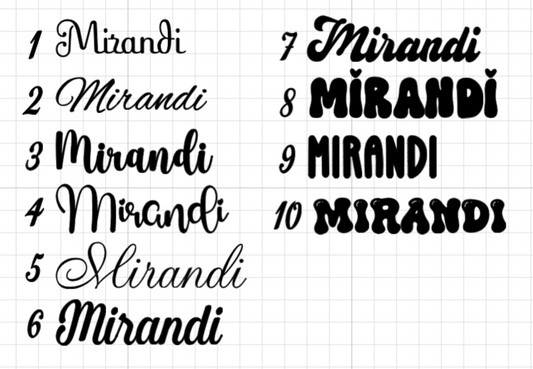 1 Mirandi
2 Mirandi
3 Mirandi
4 Mirandi
5 Mirandi
6 Mirandi
7 Mirandi
8 MIRANDI
9 MIRANDI
10 MIRANDI